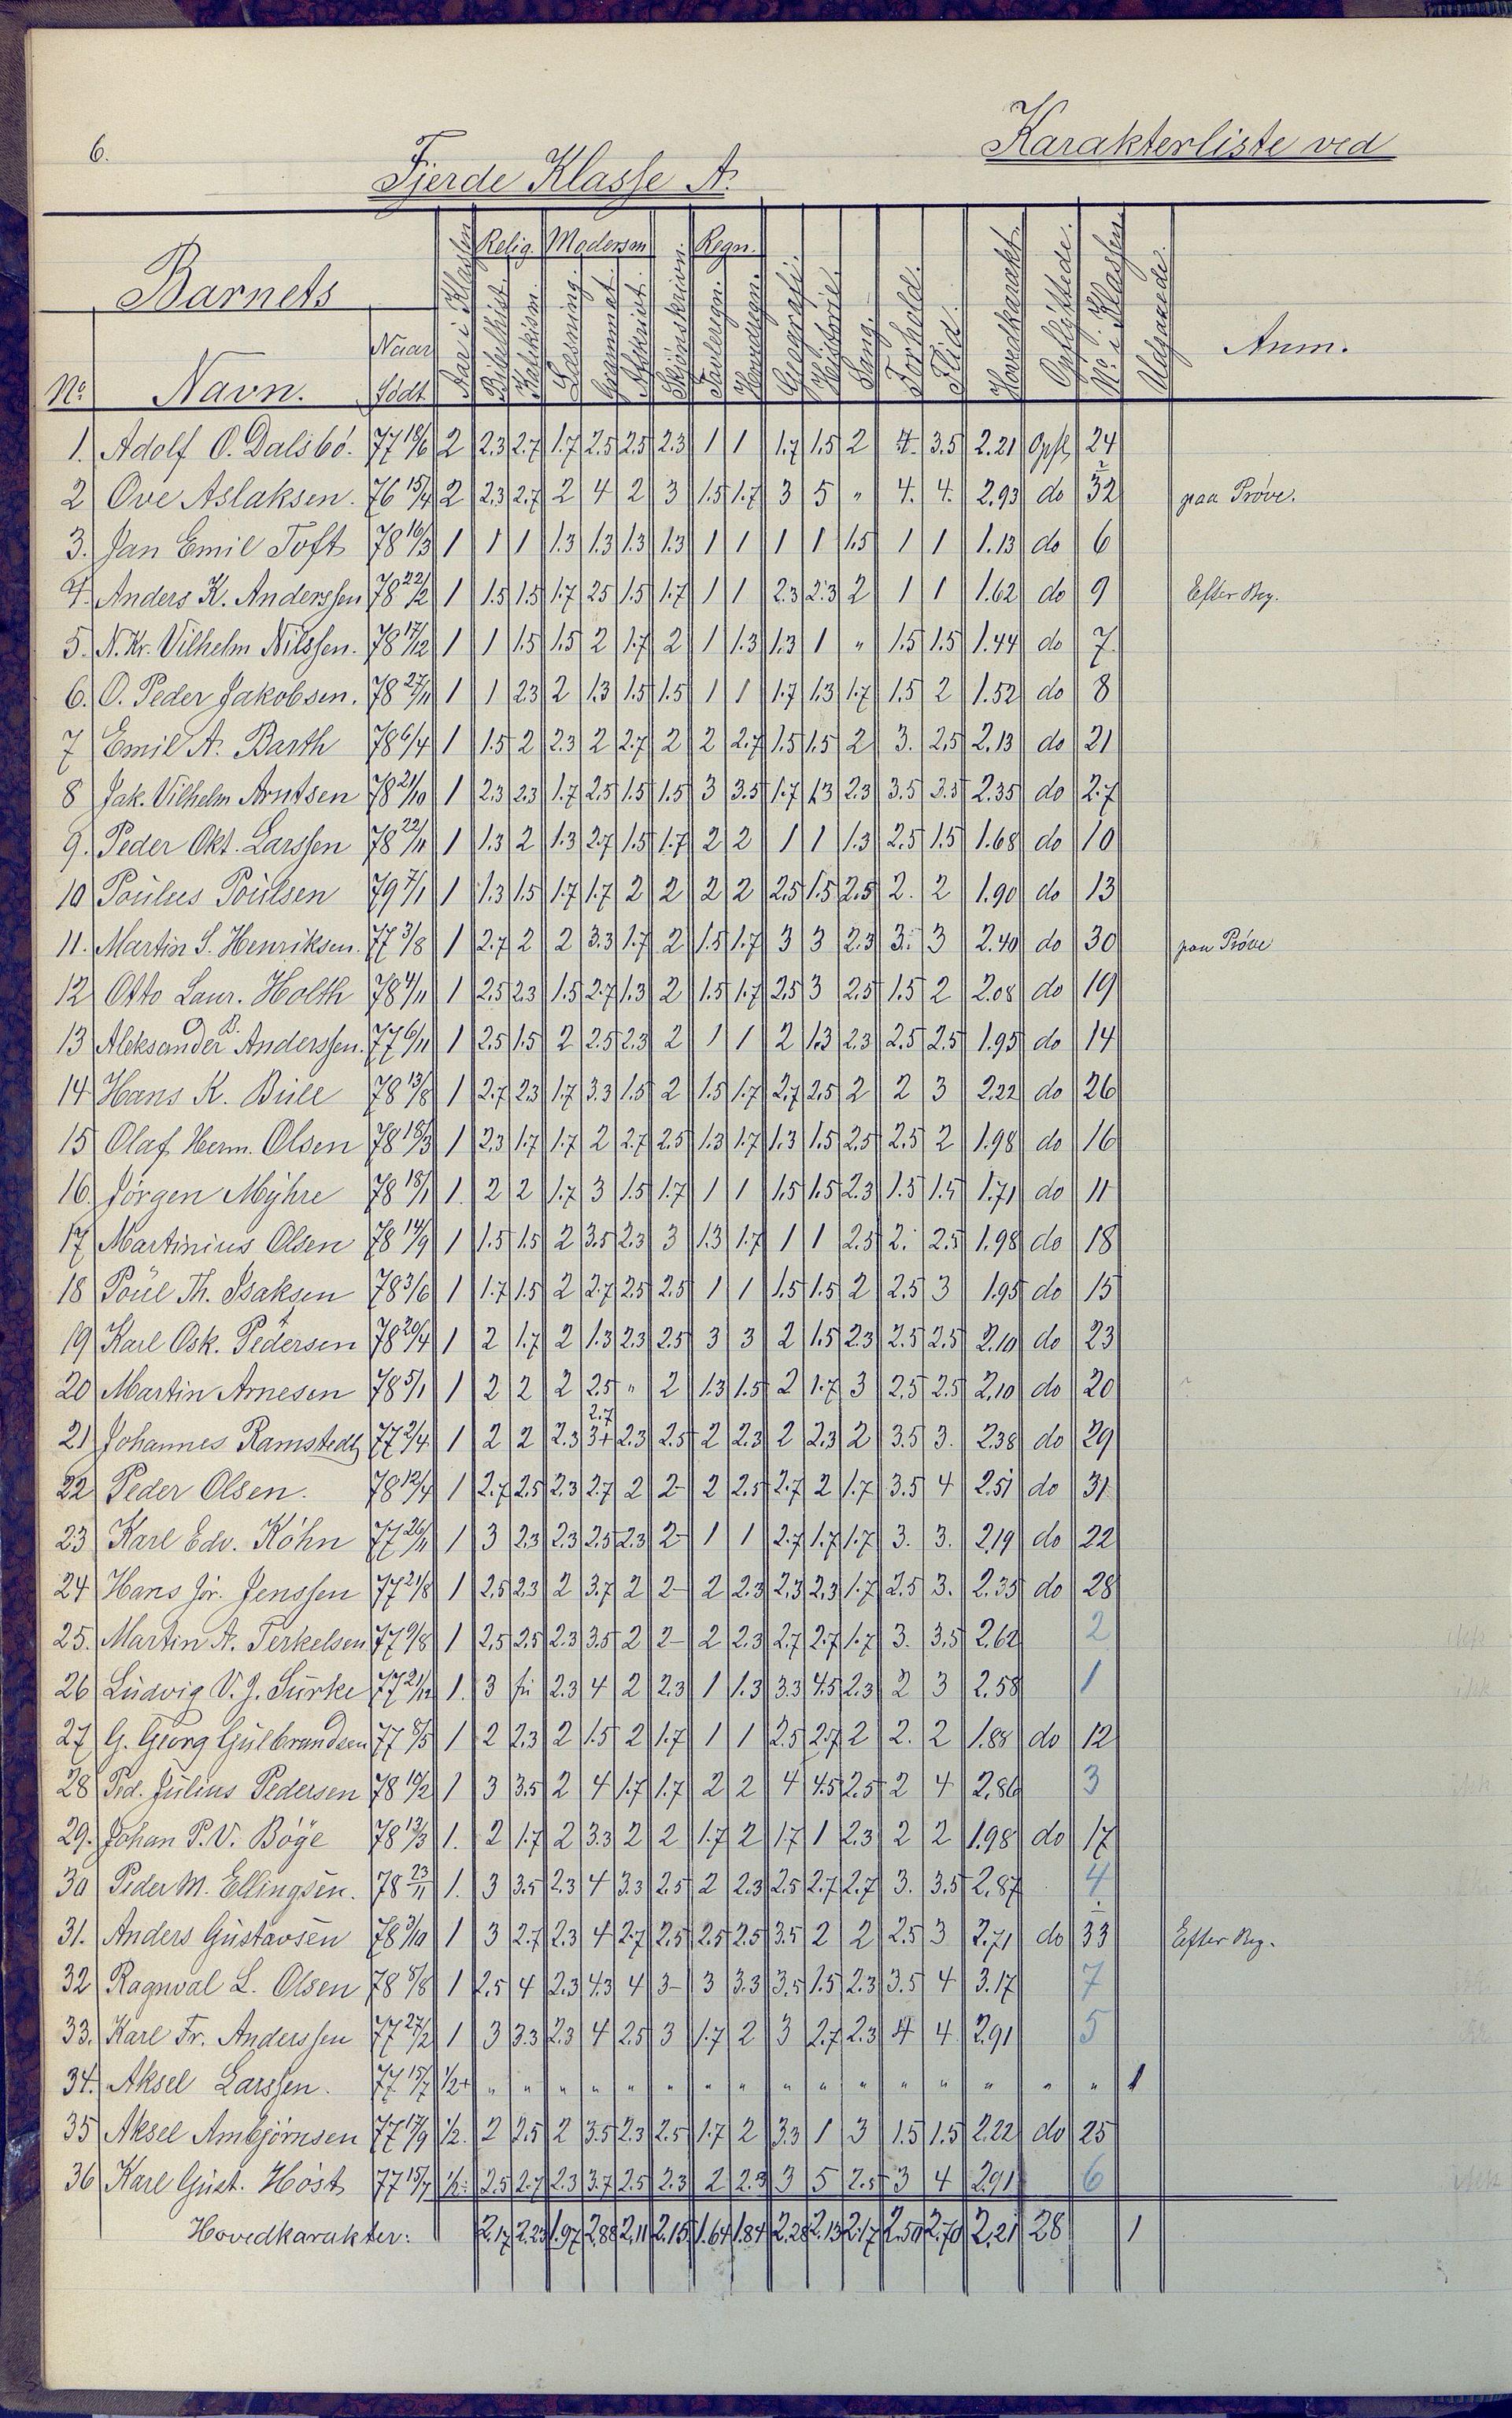 6.
Karakterliste ved
Fjerde Klasse A.
Barnets
Relig. Modersm. Regn.
No Navn. Naar født Aar i Klassen Bibelhist. Katekism. Læsning. Grammat. Afskrivt. Skjönskrivn. Tavleregn. Hovedregn. Geografi. Historie. Sang. Forhold. Flid. Hovedkarakt. Opflyttede. No i Klassen. Udgaaede. Anm.
1. Adolf O. Dalsbö. 77 18/6 2 2.3 2.7 1.7 2.5 2.5 2.3 1 1 1.7 1.5 2 4. 3.5 2.21 Opfl. 24
2 Ove Aslaksen. 76 15/4 2 2.3 2.7 2 4 2 3 1.5 1.7 3 5 „ 4. 4. 2.93 do 32 paa Pröve.
3. Jan Emil Toft 78 16/3 1 1 1 1.3 1.3 1.3 1.3 1 1 1 1 1.5 1 1 1.13 do 6
4. Anders K. Anderssen 78 22/2 1 1.5 1.5 1.7 2.5 1.5 1.7 1 1 2.3 2.3 2 1 1 1.62 do 9 Efter Beg.
5. N. Kr. Vilhelm Nilssen. 78 17/12 1 1 1.5 1.5 2 1.7 2 1 1.3 1.3 1 „ 1.5 1.5 1.44 do 7.
6. O. Peder Jakobsen. 78 27/11 1 1 2.3 2 1.3 1.5 1.5 1 1 1.7 1.3 1.7 1.5 2 1.52 do 8
7 Emil A. Barth 78 6/4 1 1.5 2 2.3 2 2.7 2 2 2.7 1.5 1.5 2 3. 2.5 2.13 do 21
8 Jak. Vilhelm Arntsen 78 21/10 1 2.3 2.3 1.7 2.5 1.5 1.5 3 3.5 1.7 1.3 2.3 3.5 3.5 2.35 do 27
9. Peder Okt. Larssen 78 22/11 1 1.3 2 1.3 2.7 1.5 1.7 2 2 1 1 1.3 2.5 1.5 1.68 do 10
10 Poulus Poulsen 79 7/1 1 1.3 1.5 1.7 1.7 2 2 2 2 2.5 1.5 2.5 2. 2 1.90 do 13
11. Martin S. Henriksen. 77 3/8 1 2.7 2 2 3.3 1.7 2 1.5 1.7 3 3 2.3 3. 3 2.40 do 30 paa Pröve
12 Otto Laur. Holth 78 4/11 1 2.5 2.3 1.5 2.7 1.3 2 1.5 1.7 2.5 3 2.5 1.5 2 2.08 do 19
13 Aleksander B. Anderssen. 77 6/11 1 2.5 1.5 2 2.5 2.3 2 1 1 2 1.3 2.3 2.5 2.5 1.95 do 14
14 Hans K. Bull 78 13/8 1 2.7 2.3 1.7 3.3 1.5 2 1.5 1.7 2.7 2.5 2 2 3 2.22 do 26
15 Olaf Herm. Olsen 78 18/3 1 2.3 1.7 1.7 2 2.7 2.5 1.3 1.7 1.3 1.5 2.5 2.5 2 1.98 do 16
16. Jörgen Myhre 78 18/1 1. 2 2 1.7 3 1.5 1.7 1 1 1.5 1.5 2.3 1.5 1.5 1.71 do 11
17 Martinius Olsen 78 14/9 1 1.5 1.5 2 3.5 2.3 3 1.3 1.7 1 1 2.5 2. 2.5 1.98 do 18
18 Poul Th. Isaksen 78 3/6 1 1.7 1.5 2 2.7 2.5 2.5 1 1 1.5 1.5 2 2.5 3 1.95 do 15
19 Karl Osk. Pedersen 78 20/4 1 2 1.7 2 1.3 2.3 2.5 3 3 2 1.5 2.3 2.5 2.5 2.10 do 23
20 Martin Arnesen 78 5/1 1 2 2 2 2.5 „ 2 1.3 1.5 2 1.7 3 2.5 2.5 2.10 do 20
2.7
21 Johannes Ramstedt 77 2/4 1 2 2 2.3 3+ 2.3 2.5 2 2.3 2 2.3 2 3.5 3. 2.38 do 29
22 Peder Olsen. 78 12/4 1 2.7 2.5 2.3 2.7 2 2- 2 2.5 2.7 2 1.7 3.5 4 2.51 do 31
23 Karl Edv. Köhn 77 26/11 1 3 2.3 2.3 2.5 2.3 2- 1 1 2.7 1.7 1.7 3. 3. 2.19 do 22
24 Hans Jör. Jenssen 77 21/8 1 2.5 2.3 2 3.7 2 2- 2 2.3 2.3 2.3 1.7 2.5 3. 2.35 do 28
25. Martin A. Terkelsen 77 9/8 1 2.5 2.5 2.3 3.5 2 2- 2 2.3 2.7 2.7 1.7 3. 3.5 2.62 2
26 Ludvig V. J. Surke 77 21/12 1. 3 fri 2.3 4 2 2.3 1 1.3 3.3 4.5 2.3 2 3 2.58 1
27 G. Georg Gulbrandsen 77 8/5 1 2 2.3 2 1.5 2 1.7 1 1 2.5 2.7 2 2. 2 1.88 do 12
28 Ped. Julius Pedersen 78 10/2 1 3 3.5 2 4 1.7 1.7 2 2 4 4.5 2.5 2 4 2.86 3
29. Johan P. V. Böye 78 13/3 1. 2 1.7 2 3.3 2 2 1.7 2 1.7 1 2.3 2 2 1.98 do 17
30 Peder M. Ellingsen. 78 23/11 1. 3 3.5 2.3 4 3.3 2.5 2 2.3 2.5 2.7 2.7 3. 3.5 2.87 4
31. Anders Gustavsen 78 3/10 1 3 2.7 2.3 4 2.7 2.5 2.5 2.5 3.5 2 2 2.5 3 2.71 do 33 Efter Beg.
32 Ragnval L. Olsen 78 5/8 1 2.5 4 2.3 4.3 4 3- 3 3.3 3.5 1.5 2.3 3.5 4 3.17 7
33. Karl Fr. Anderssen 77 27/2 1 3 3.3 2.3 4 2.5 3 1.7 2 3 2.7 2.3 4 4 2.91 5
34. Aksel Larssen. 77 15/7 1/2+ „ „ „ „ „ „ „ „ „ „ „ „ „ „ „ „ 1
35 Aksel Ambjörnsen 77 17/9 1/2. 2 2.5 2 3.5 2.3 2.5 1.7 2 3.3 1 3 1.5 1.5 2.22 do 25
36 Karl Gust. Höst 77 15/7 1/2 2.5 2.7 2.3 3.7 2.5 2.3 2 2.3 3 5 2.5 3 4 2.91 6
Hovedkarakter: 2.17 2.23 1.97 2.88 2.11 2.15 1.64 1.84 2.28 2.13 2.17 2.50 2.70 2.21 28 1